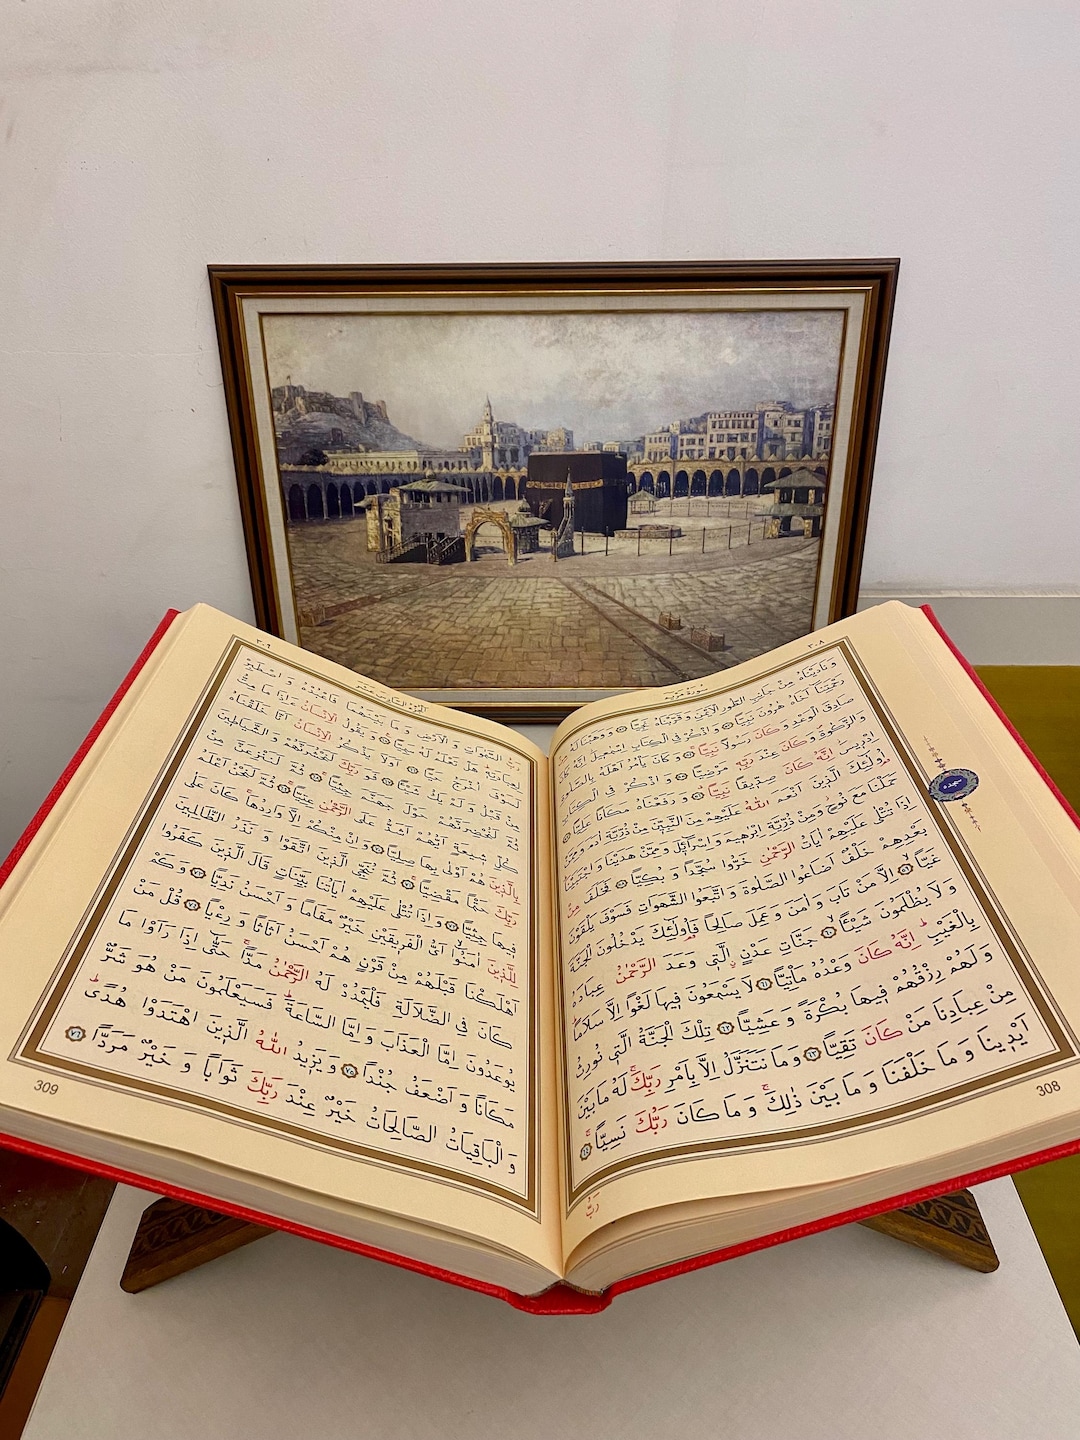 ٣٠٨
سُورَةُ مَرْيَمَ
وَنَادَيْنَاهُ مِنْ جَانِبِ الطُّورِ الْاَيْمَنِ وَقَرَّبْنَاهُ نَجِيًّا ﴿٥٢﴾ وَوَهَبْنَا لَهُ مِنْ
رَحْمَتِنَٓا اَخَاهُ هٰرُونَ نَبِيًّا ﴿٥٣﴾ وَاذْكُرْ فِي الْكِتَابِ اِسْمٰعِيلَ اِنَّهُ كَانَ
صَادِقَ الْوَعْدِ وَكَانَ رَسُولًا نَبِيًّا ﴿٥٤﴾ وَكَانَ يَأْمُرُ اَهْلَهُ بِالصَّلٰوةِ
وَالزَّكٰوةِ وَكَانَ عِنْدَ رَبِّهِ مَرْضِيًّا ﴿٥٥﴾ وَاذْكُرْ فِي الْكِتَابِ
اِدْرِيسَ اِنَّهُ كَانَ صِدِّيقًا نَبِيًّا ﴿٥٦﴾ وَرَفَعْنَاهُ مَكَانًا عَلِيًّا ﴿٥٧﴾
اُولٰٓئِكَ الَّذِينَ اَنْعَمَ اللّٰهُ عَلَيْهِمْ مِنَ النَّبِيِّنَ مِنْ ذُرِّيَّةِ اٰدَمَ وَمِمَّنْ
حَمَلْنَا مَعَ نُوحٍ وَمِنْ ذُرِّيَّةِ اِبْرٰهِيمَ وَاِسْرَٓائِلَ وَمِمَّنْ هَدَيْنَا وَاجْتَبَيْنَا
اِذَا تُتْلٰى عَلَيْهِمْ اٰيَاتُ الرَّحْمٰنِ خَرُّوا سُجَّدًا وَبُكِيًّا ﴿٥٨﴾ فَخَلَفَ مِنْ
بَعْدِهِمْ خَلْفٌ اَضَاعُوا الصَّلٰوةَ وَاتَّبَعُوا الشَّهَوَاتِ فَسَوْفَ يَلْقَوْنَ
غَيًّا ﴿٥٩﴾ اِلَّا مَنْ تَابَ وَاٰمَنَ وَعَمِلَ صَالِحًا فَاُولٰٓئِكَ يَدْخُلُونَ الْجَنَّةَ
وَلَا يُظْلَمُونَ شَيْئًا ﴿٦٠﴾ جَنَّاتِ عَدْنٍ الَّتِي وَعَدَ الرَّحْمٰنُ عِبَادَهُ
بِالْغَيْبِ اِنَّهُ كَانَ وَعْدُهُ مَأْتِيًّا ﴿٦١﴾ لَا يَسْمَعُونَ فِيهَا لَغْوًا اِلَّا سَلَامًا
وَلَهُمْ رِزْقُهُمْ فِيهَا بُكْرَةً وَعَشِيًّا ﴿٦٢﴾ تِلْكَ الْجَنَّةُ الَّتِي نُورِثُ
مِنْ عِبَادِنَا مَنْ كَانَ تَقِيًّا ﴿٦٣﴾ وَمَا نَتَنَزَّلُ اِلَّا بِاَمْرِ رَبِّكَ لَهُ مَا بَيْنَ
اَيْدِينَا وَمَا خَلْفَنَا وَمَا بَيْنَ ذٰلِكَ وَمَا كَانَ رَبُّكَ نَسِيًّا ﴿٦٤﴾
سجده
رَبُّ
308
٣٠٩
اَلْجُزْءُ السَّادِسَ عَشَرَ
رَبُّ السَّمٰوَاتِ وَالْاَرْضِ وَمَا بَيْنَهُمَا فَاعْبُدْهُ وَاصْطَبِرْ
لِعِبَادَتِهِ هَلْ تَعْلَمُ لَهُ سَمِيًّا ﴿٦٥﴾ وَيَقُولُ الْاِنْسَانُ ءَاِذَا مَا مِتُّ
لَسَوْفَ اُخْرَجُ حَيًّا ﴿٦٦﴾ اَوَلَا يَذْكُرُ الْاِنْسَانُ اَنَّا خَلَقْنَاهُ
مِنْ قَبْلُ وَلَمْ يَكُ شَيْئًا ﴿٦٧﴾ فَوَرَبِّكَ لَنَحْشُرَنَّهُمْ وَالشَّيَاطِينَ
ثُمَّ لَنُحْضِرَنَّهُمْ حَوْلَ جَهَنَّمَ جِثِيًّا ﴿٦٨﴾ ثُمَّ لَنَنْزِعَنَّ مِنْ
كُلِّ شِيعَةٍ اَيُّهُمْ اَشَدُّ عَلَى الرَّحْمٰنِ عِتِيًّا ﴿٦٩﴾ ثُمَّ لَنَحْنُ اَعْلَمُ
بِالَّذِينَ هُمْ اَوْلٰى بِهَا صِلِيًّا ﴿٧٠﴾ وَاِنْ مِنْكُمْ اِلَّا وَارِدُهَا كَانَ عَلٰى
رَبِّكَ حَتْمًا مَقْضِيًّا ﴿٧١﴾ ثُمَّ نُنَجِّي الَّذِينَ اتَّقَوْا وَنَذَرُ الظَّالِمِينَ
فِيهَا جِثِيًّا ﴿٧٢﴾ وَاِذَا تُتْلٰى عَلَيْهِمْ اٰيَاتُنَا بَيِّنَاتٍ قَالَ الَّذِينَ كَفَرُوا
لِلَّذِينَ اٰمَنُوا اَيُّ الْفَرِيقَيْنِ خَيْرٌ مَقَامًا وَاَحْسَنُ نَدِيًّا ﴿٧٣﴾ وَكَمْ
اَهْلَكْنَا قَبْلَهُمْ مِنْ قَرْنٍ هُمْ اَحْسَنُ اَثَاثًا وَرِءْيًا ﴿٧٤﴾ قُلْ مَنْ
كَانَ فِي الضَّلَالَةِ فَلْيَمْدُدْ لَهُ الرَّحْمٰنُ مَدًّا حَتّٰى اِذَا رَاَوْا مَا
يُوعَدُونَ اِمَّا الْعَذَابَ وَاِمَّا السَّاعَةَ فَسَيَعْلَمُونَ مَنْ هُوَ شَرٌّ
مَكَانًا وَاَضْعَفُ جُنْدًا ﴿٧٥﴾ وَيَزِيدُ اللّٰهُ الَّذِينَ اهْتَدَوْا هُدًى
وَالْبَاقِيَاتُ الصَّالِحَاتُ خَيْرٌ عِنْدَ رَبِّكَ ثَوَابًا وَخَيْرٌ مَرَدًّا ﴿٧٦﴾
309